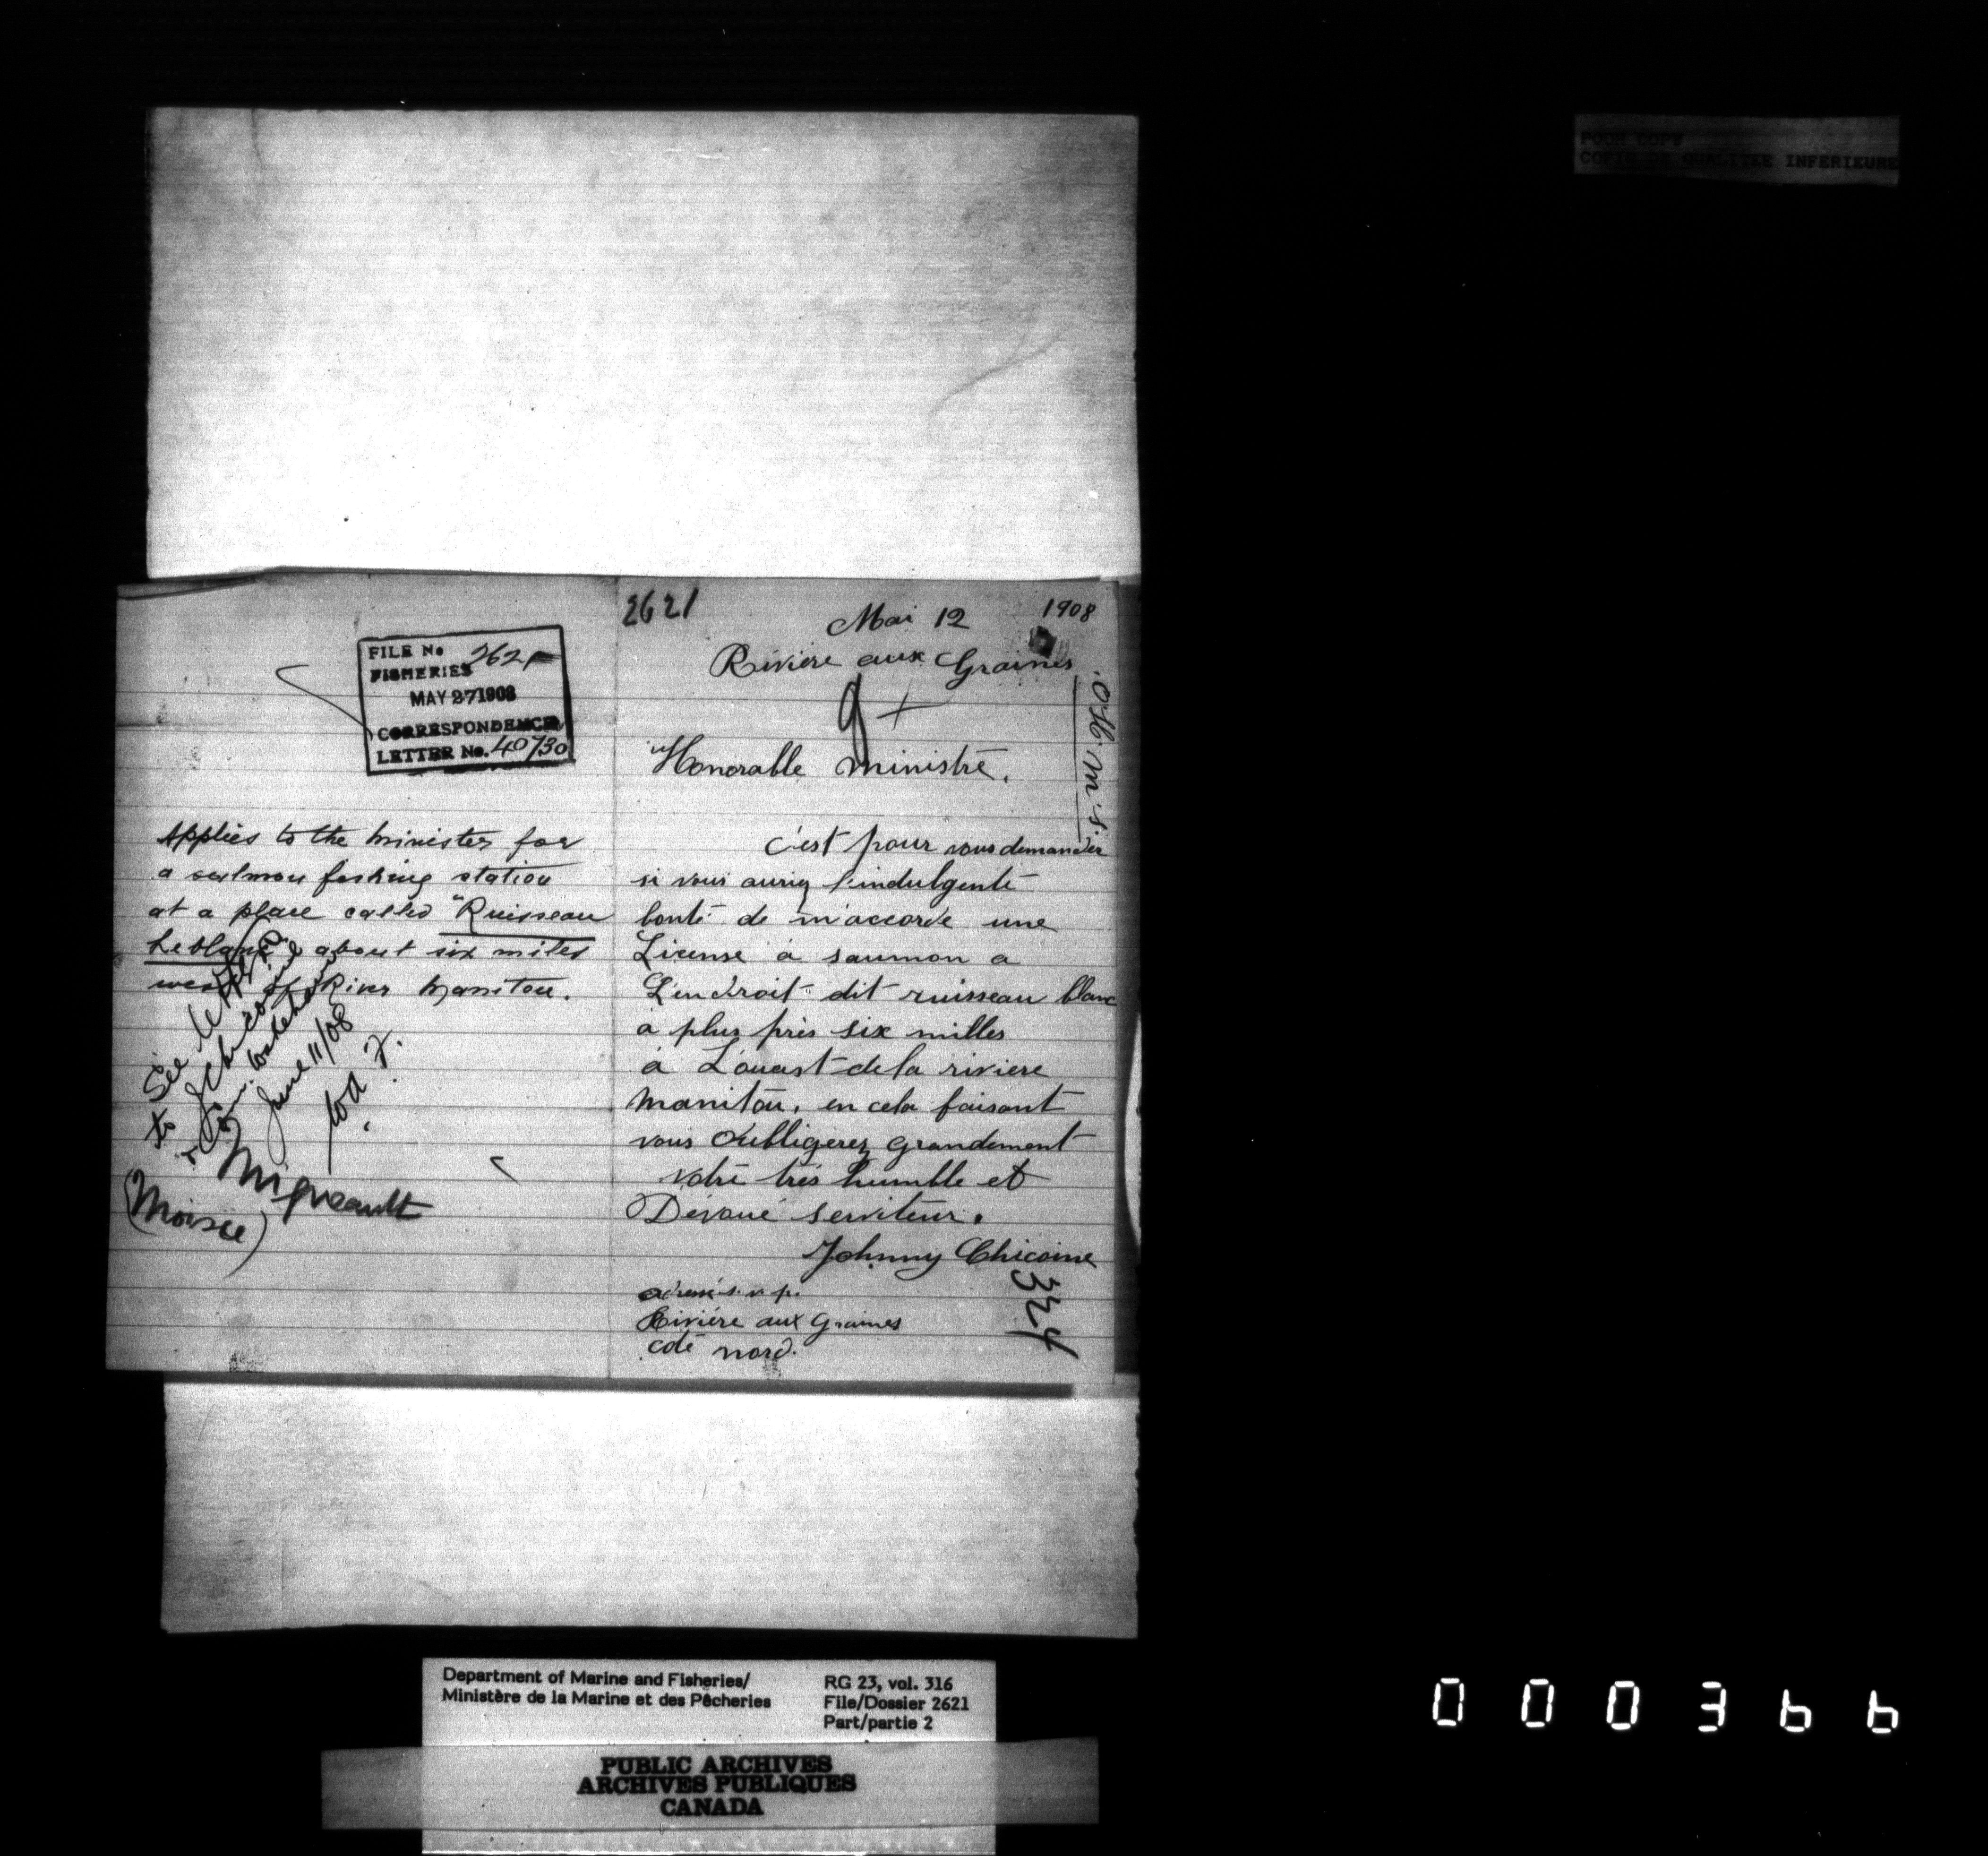 POOR COPY
COPIE DE QUALITEE INFERIEURE
FILE No 2621
FISHERIES
MAY 27 1908
CORRESPONDENCE
LETTER No. 40730
Applies to the Minister for
a salmon fishing station
at a place called "Ruisseau
Leblanc" about six miles
west of River Manitou.
See
to J Chicoine
June 11/08
Migneault
(Moisie)
2621
Mai 12 1908
Rivière aux Graines
Honorable Ministre.
c'est pour vous demander
si vous auriez l'indulgente
bonté de m'accorde une
License à saumon a
L'endroit dit ruisseau blanc
a plus près six milles
a L'ouest de la riviere
Manitou. en cela faisant
vous oubligerez grandement
votre très humble et
Dévoué serviteur.
Johnny Chicoine
adresse s. v. p.
Rivière aux Graines
coté nord.
324
Department of Marine and Fisheries/
Ministère de la Marine et des Pêcheries
RG 23, vol. 316
File/Dossier 2621
Part/partie 2
PUBLIC ARCHIVES
ARCHIVES PUBLIQUES
CANADA
000366